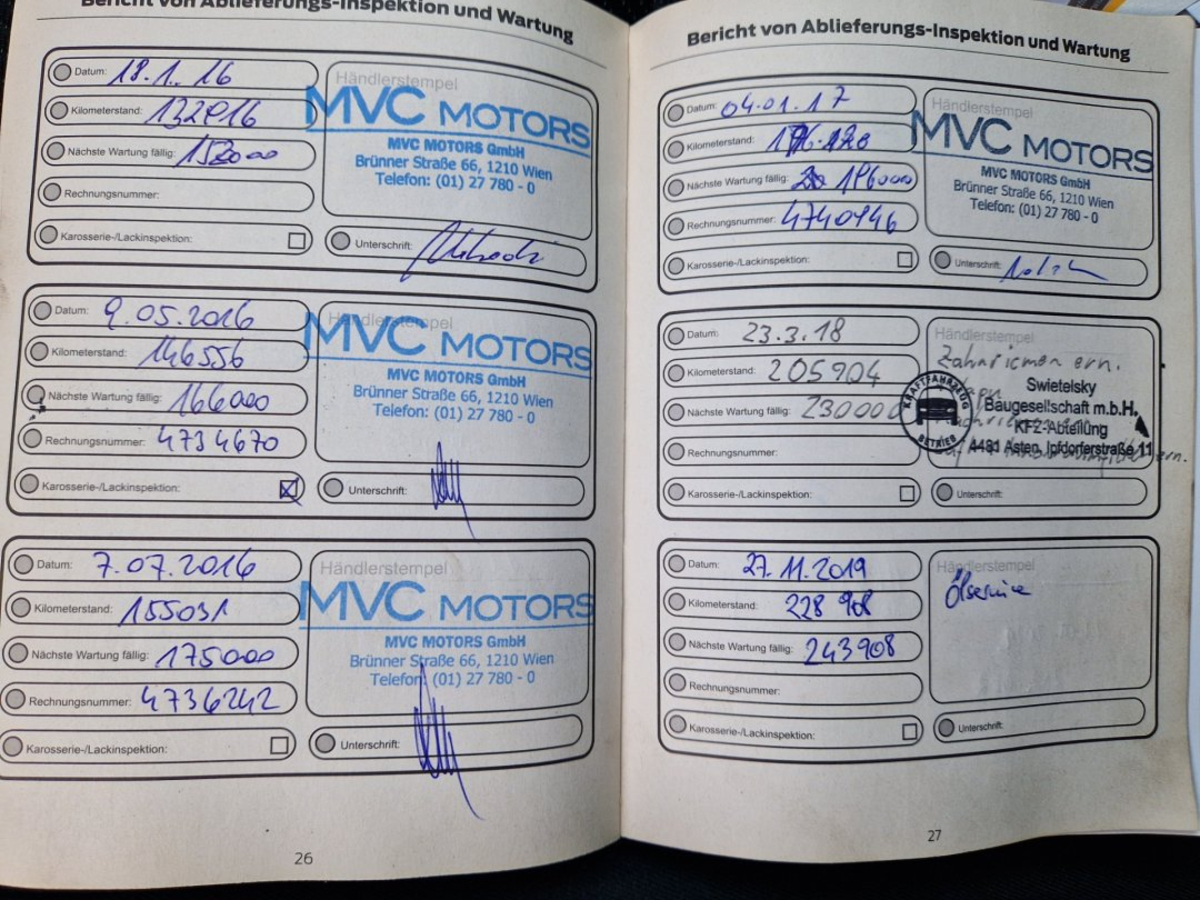 Bericht von Ablieferungs-Inspektion und Wartung
Datum: 18.1.16
Kilometerstand: 132816
Nächste Wartung fällig: 152000
Rechnungsnummer:
Karosserie-/Lackinspektion:
Händlerstempel
MVC MOTORS
MVC MOTORS GmbH
Brünner Straße 66, 1210 Wien
Telefon: (01) 27 780 - 0
Unterschrift:
Datum: 9.05.2016
Kilometerstand: 146556
Nächste Wartung fällig: 166000
Rechnungsnummer: 4734670
Karosserie-/Lackinspektion:
Händlerstempel
MVC MOTORS
MVC MOTORS GmbH
Brünner Straße 66, 1210 Wien
Telefon: (01) 27 780 - 0
Unterschrift:
Datum: 7.07.2016
Kilometerstand: 155031
Nächste Wartung fällig: 175000
Rechnungsnummer: 4736242
Karosserie-/Lackinspektion:
Händlerstempel
MVC MOTORS
MVC MOTORS GmbH
Brünner Straße 66, 1210 Wien
Telefon: (01) 27 780 - 0
Unterschrift:
26
Bericht von Ablieferungs-Inspektion und Wartung
Datum: 04.01.17
Kilometerstand:
Nächste Wartung fällig: 196000
Rechnungsnummer: 4740946
Karosserie-/Lackinspektion:
Händlerstempel
MVC MOTORS
MVC MOTORS GmbH
Brünner Straße 66, 1210 Wien
Telefon: (01) 27 780 - 0
Unterschrift:
Datum: 23.3.18
Kilometerstand: 205904
Nächste Wartung fällig: 230000
Rechnungsnummer:
Karosserie-/Lackinspektion:
Händlerstempel
Zahnriemen ern.
KRAFTFAHRZEUG BETRIEB
Swietelsky
Baugesellschaft m.b.H.
KFZ-Abteilung
4481 Asten, Ipfdorferstraße 11
ern.
Unterschrift:
Datum: 27.11.2019
Kilometerstand: 228 908
Nächste Wartung fällig: 243908
Rechnungsnummer:
Karosserie-/Lackinspektion:
Händlerstempel
Ölservice
Unterschrift:
27